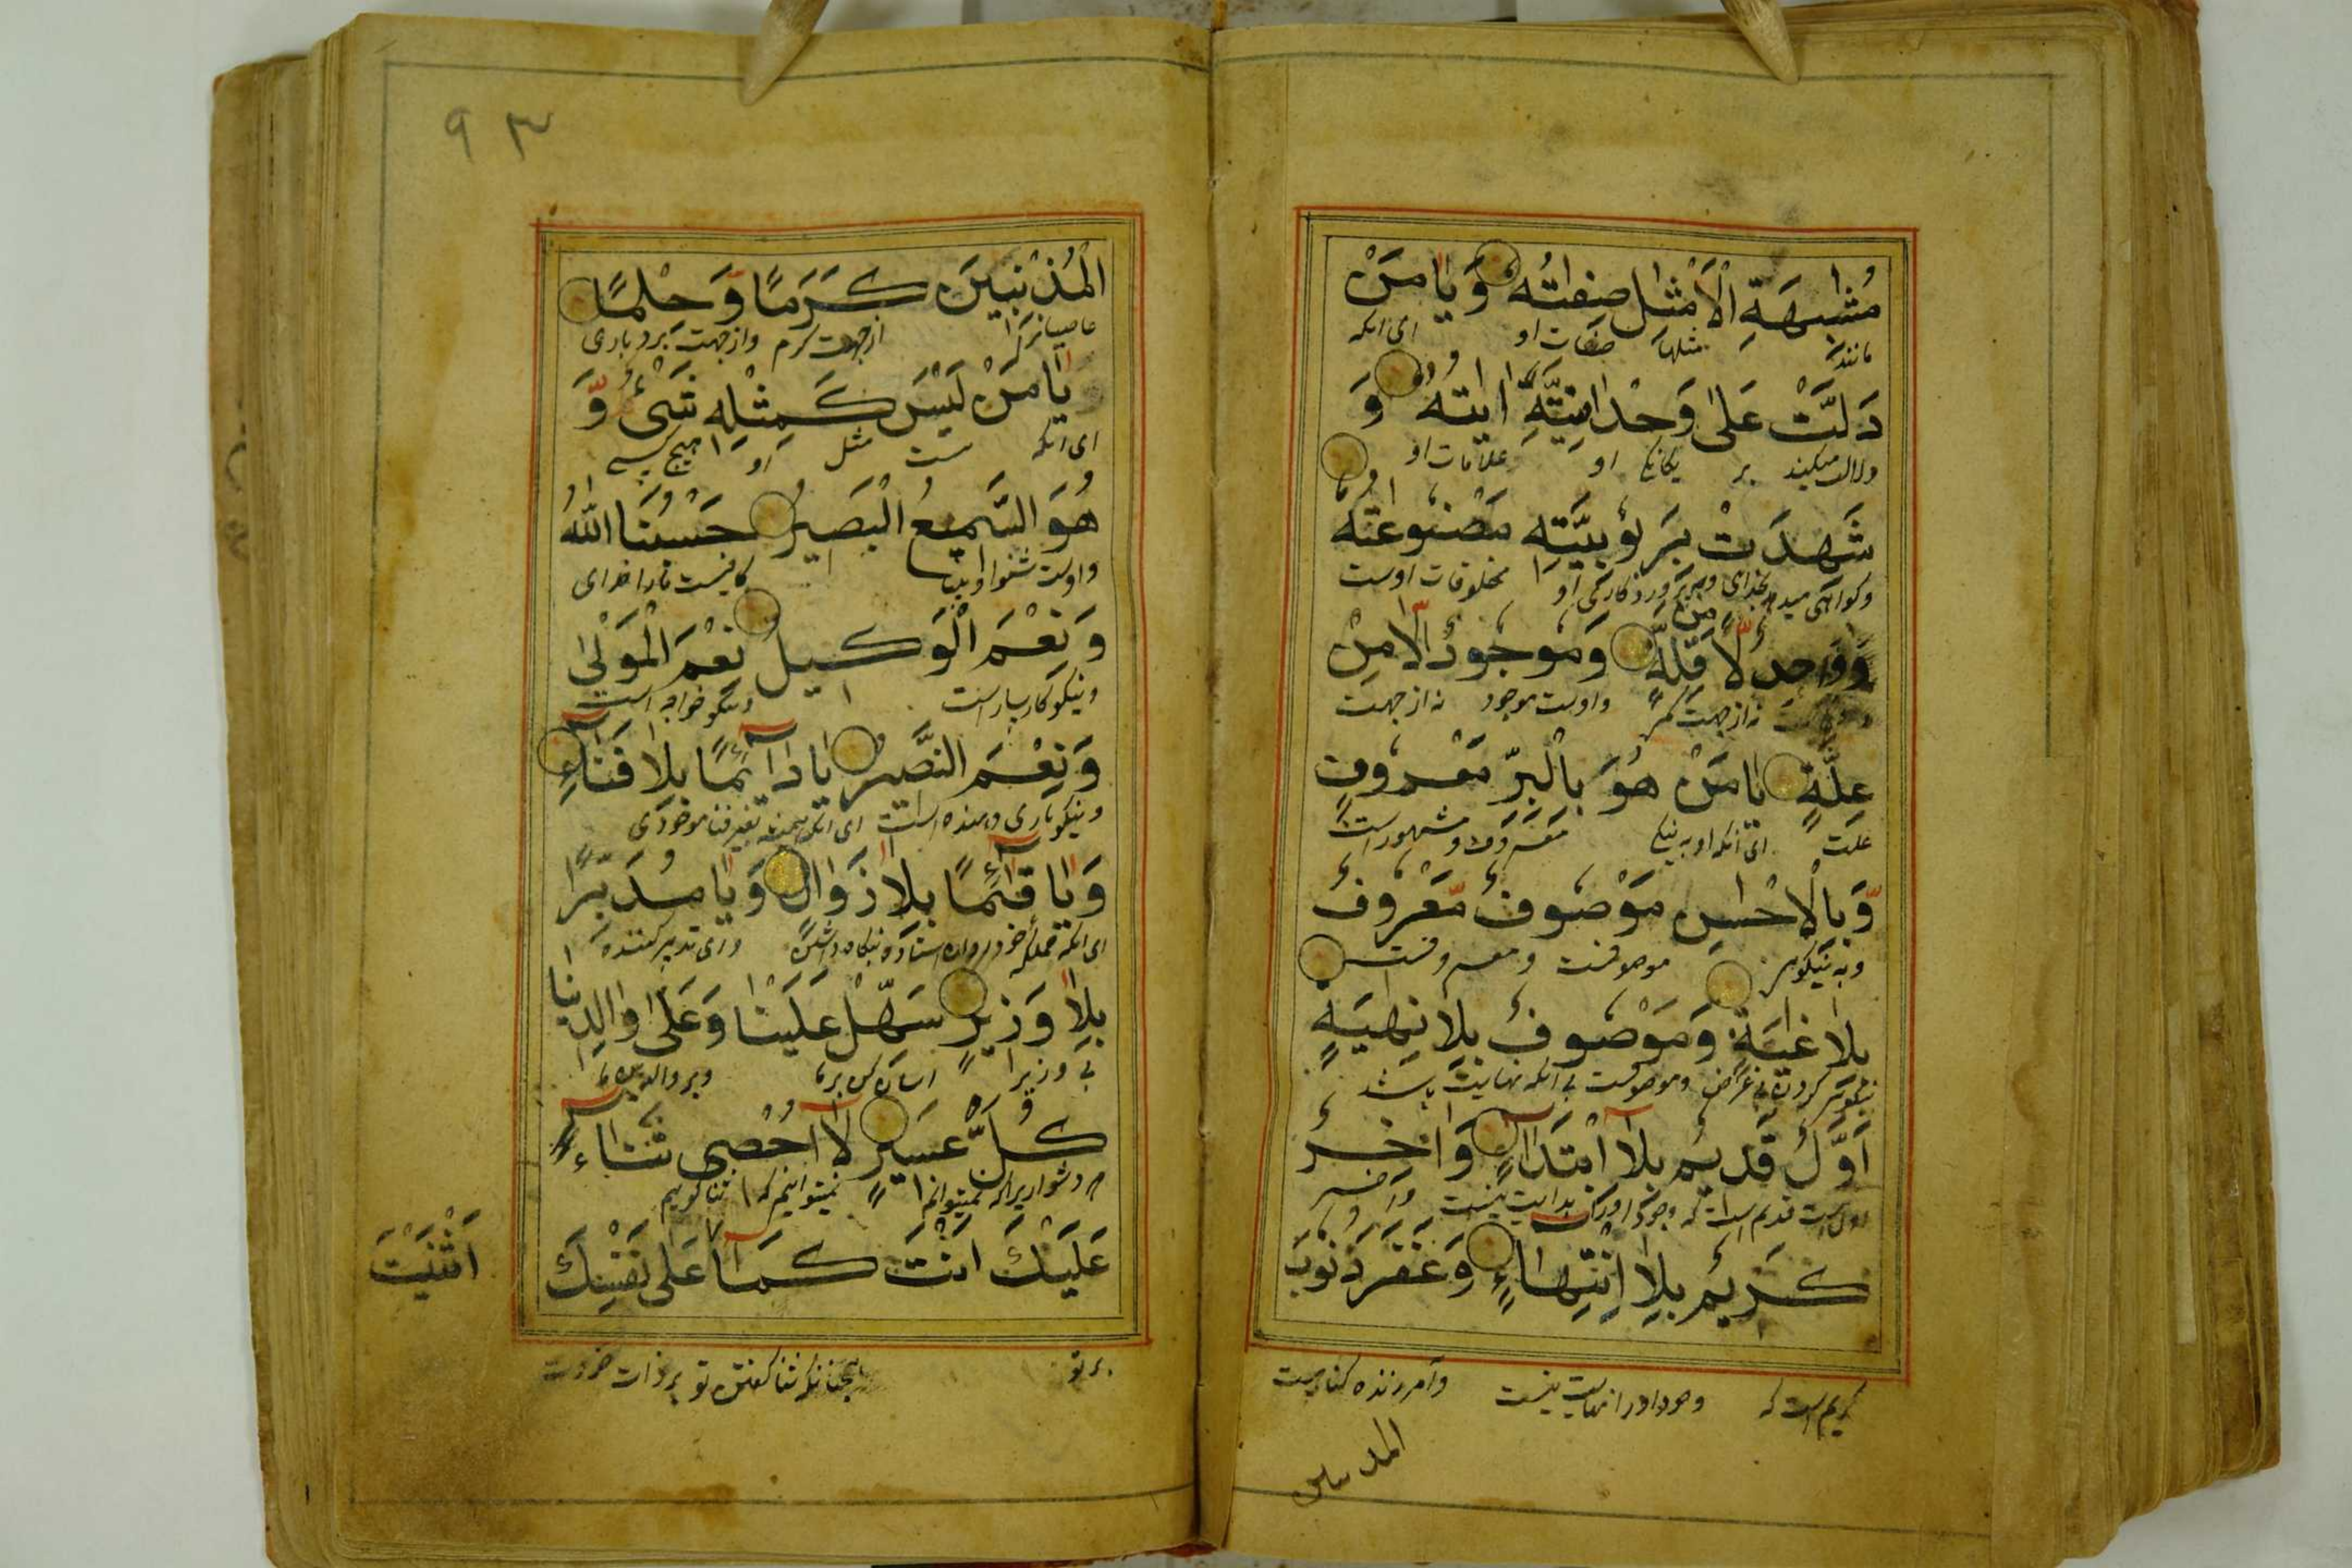 مُشٰبِهَةِ الْاَمْثٰلِ صِفٰتُهُ وَيٰا مَنْ
مانند مثلها صفات او ای انکه
دَلَّتْ عَلٰى وَحْدٰانِيَّتِهِ اٰيٰتُهُ وَ
دلالت میکند بر یکانکی او علامات او
شَهِدَتْ بِرَبُوبِيَّتِهِ مَصْنُوعٰتُهُ
وکواهی میدهد بخدای و پرورد کارکی او مخلوقات اوست
وَوٰاحِدٌ لَا مِنْ قِلَّةٍ وَمَوْجُودٌ لَا مِنْ
نه از جهت کمی و اوست موجود نه از جهت
عِلَّةٍ يٰا مَنْ هُوَ بِالْبِرِّ مَعْرُوفٌ
علت ای انکه او به نیکی معروف و مشهور است
وَّبِالْاِحْسٰانِ مَوْصُوفٌ مَّعْرُوفٌ
و به نیکویی موصوفست و معروفست
بِلَا غٰيَةٍ وَمَوْصُوفٌ بِلَا نِهٰيَةٍ
و موصوفست بی انکه نهایت باشد
اَوَّلٌ قَدِيمٌ بِلَا ابْتِدَآءٍ وَاٰخِرٌ
اول است قدیم است که وجود او را بدایت نیست و آخر
كَرِيمٌ بِلَا اِنْتِهٰاءٍ وَغَفَرَ ذُنُوبَ
کریم است که وجود او را نهایت نیست و آمرزنده کناهست
المذنبین
۹۳
الْمُذْنِبِينَ كَرَمًا وَّحِلْمًا
عاصیانرا از جهت کرم و از جهت بردباری
يٰا مَنْ لَيْسَ كَمِثْلِهِ شَىْءٌ وَّ
ای انکه نیست مثل او هیچ کسی
هُوَ السَّمِيعُ الْبَصِيرُ حَسْبُنَا اللّٰهُ
و اوست شنوا و بینا کافیست مارا خدای
وَنِعْمَ الْوَكِيلُ نِعْمَ الْمَوْلٰى
و نیکو کارساز است و نیکو خواجه است
وَنِعْمَ النَّصِيرُ يٰا دٰآئِمًا بِلَا فَنٰآءٍ
و نیکو یاری دهنده است ای انکه همیشه بغیر فنا موجودی
وَيٰا قٰآئِمًا بِلَا زَوٰالٍ وَيٰا مُدَبِّرًا
و ای تدبیر کننده
بِلَا وَزِيرٍ سَهِّلْ عَلَيْنٰا وَعَلٰى وٰالِدَيْنٰا
بی وزیر اسان کن بر ما و بر والدین ما
كُلَّ عَسِيرٍ لَآ اُحْصِى ثَنٰآءً
هر دشواریرا که نمیتوانم نمیتوانیم که ثنا کوییم
عَلَيْكَ اَنْتَ كَمَآ عَلٰى نَفْسِكَ
اَثْنَيْتَ
بر تو همچنانکه ثنا کفتی تو بر ذات خودت